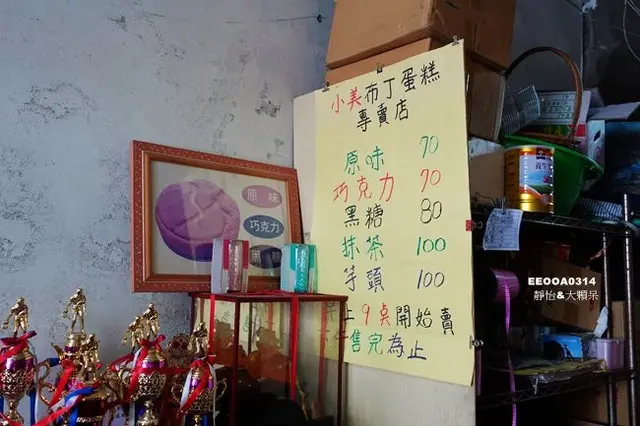 小美布丁蛋糕
專賣店
原味 70
巧克力 70
黑糖 80
抹茶 100
芋頭 100
上9桌開始賣
售完為止
原味
巧克力
黑糖
EEOOA0314
靜怡&大顆呆